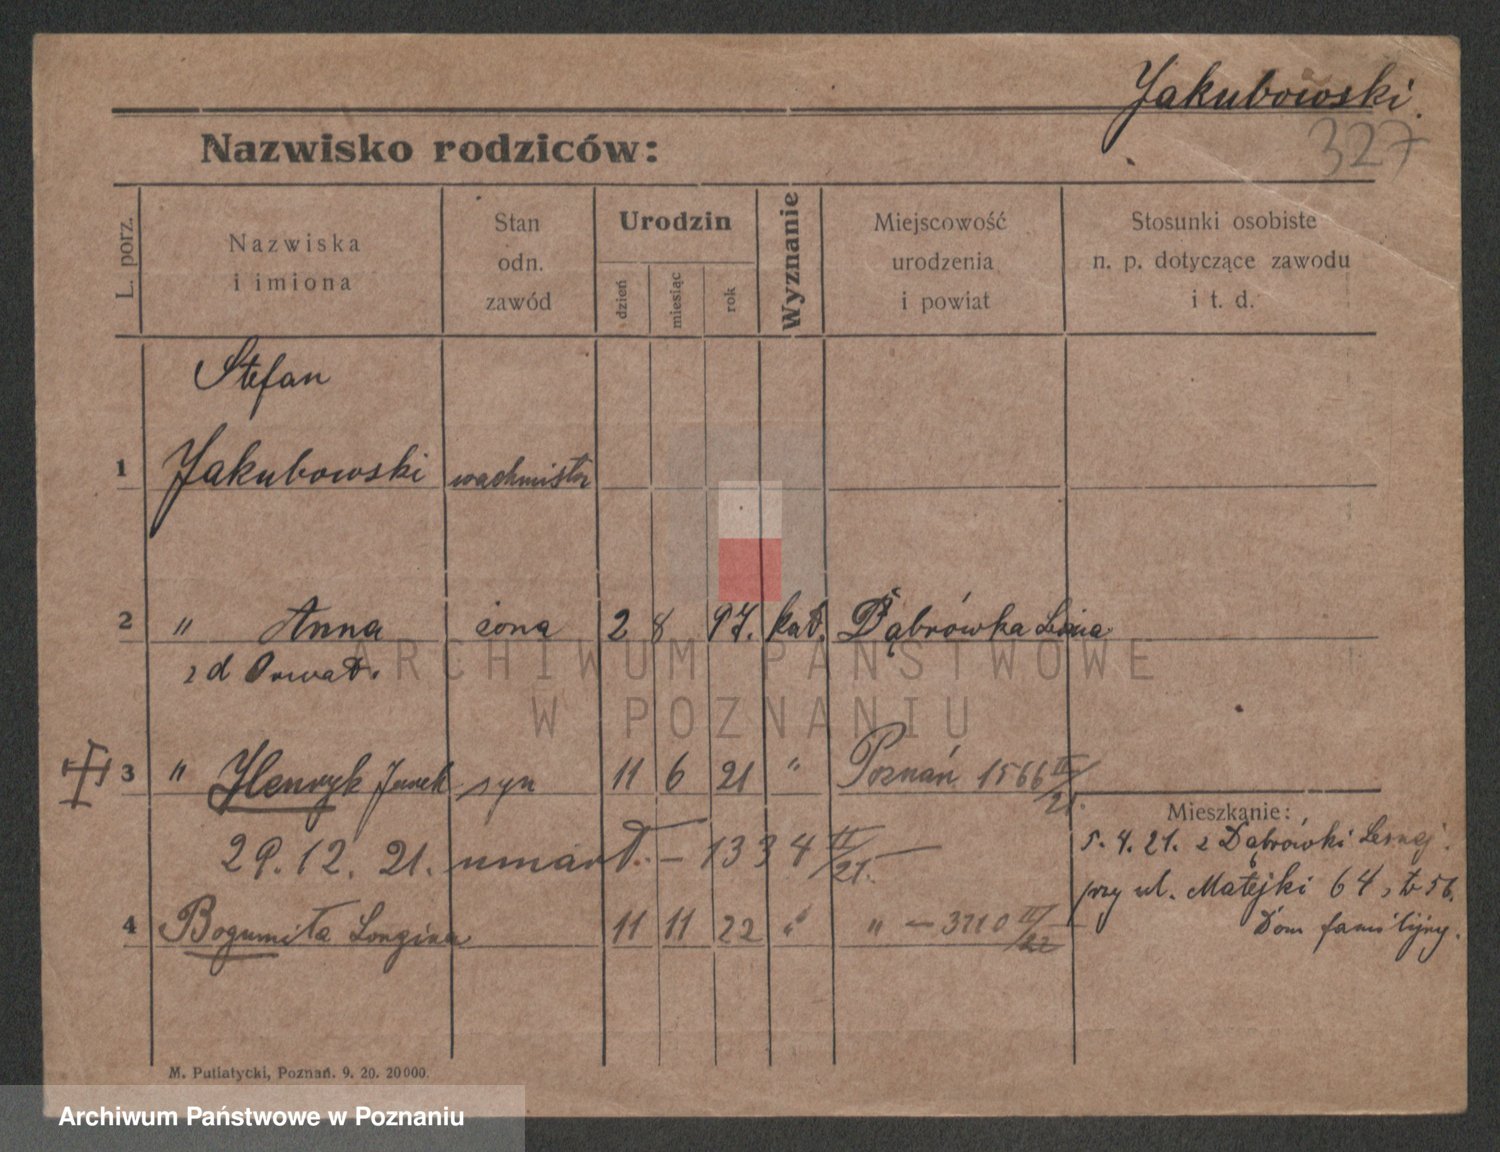 Jakubowski
327
Nazwisko rodziców:
L. porz.
Nazwiska
i imiona
Stan
odn.
zawód
Urodzin
dzień
miesiąc
rok
Wyznanie
Miejscowość
urodzenia
i powiat
Stosunki osobiste
n. p. dotyczące zawodu
i t. d.
Stefan
1 Jakubowski wachmistrz
2 " Anna żona 2 8 97. kat. Dąbrówka Leśna
z d
3 " Henryk syn 11 6 21 " Poznań 1566 II/21.
29. 12. 21. umarł. — 1334 II/21. —
4 Bogumiła Longina 11 11 22 " " — 3710 II/22
Mieszkanie:
5. 4. 21. z Dąbrówki Lesnej.
przy ul. Matejki 64, 56.
Dom familijny.
M. Putiatycki, Poznań. 9. 20. 20000.
ARCHIWUM PAŃSTWOWE
W POZNANIU
Archiwum Państwowe w Poznaniu